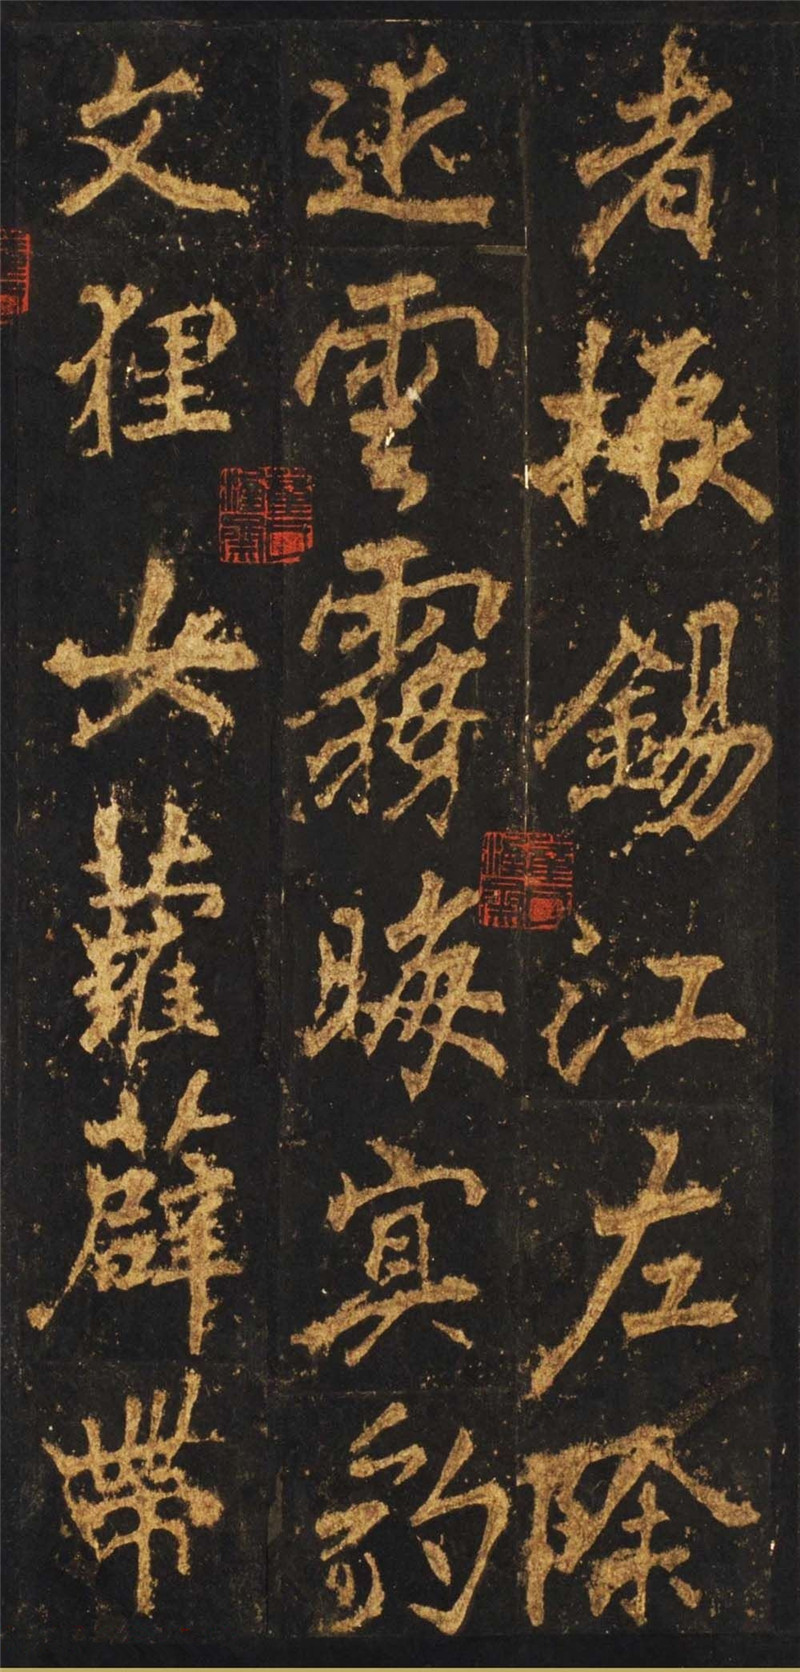 者振錫江左除
迷雲霧晦㝠豹
文狸女蘿薜帶